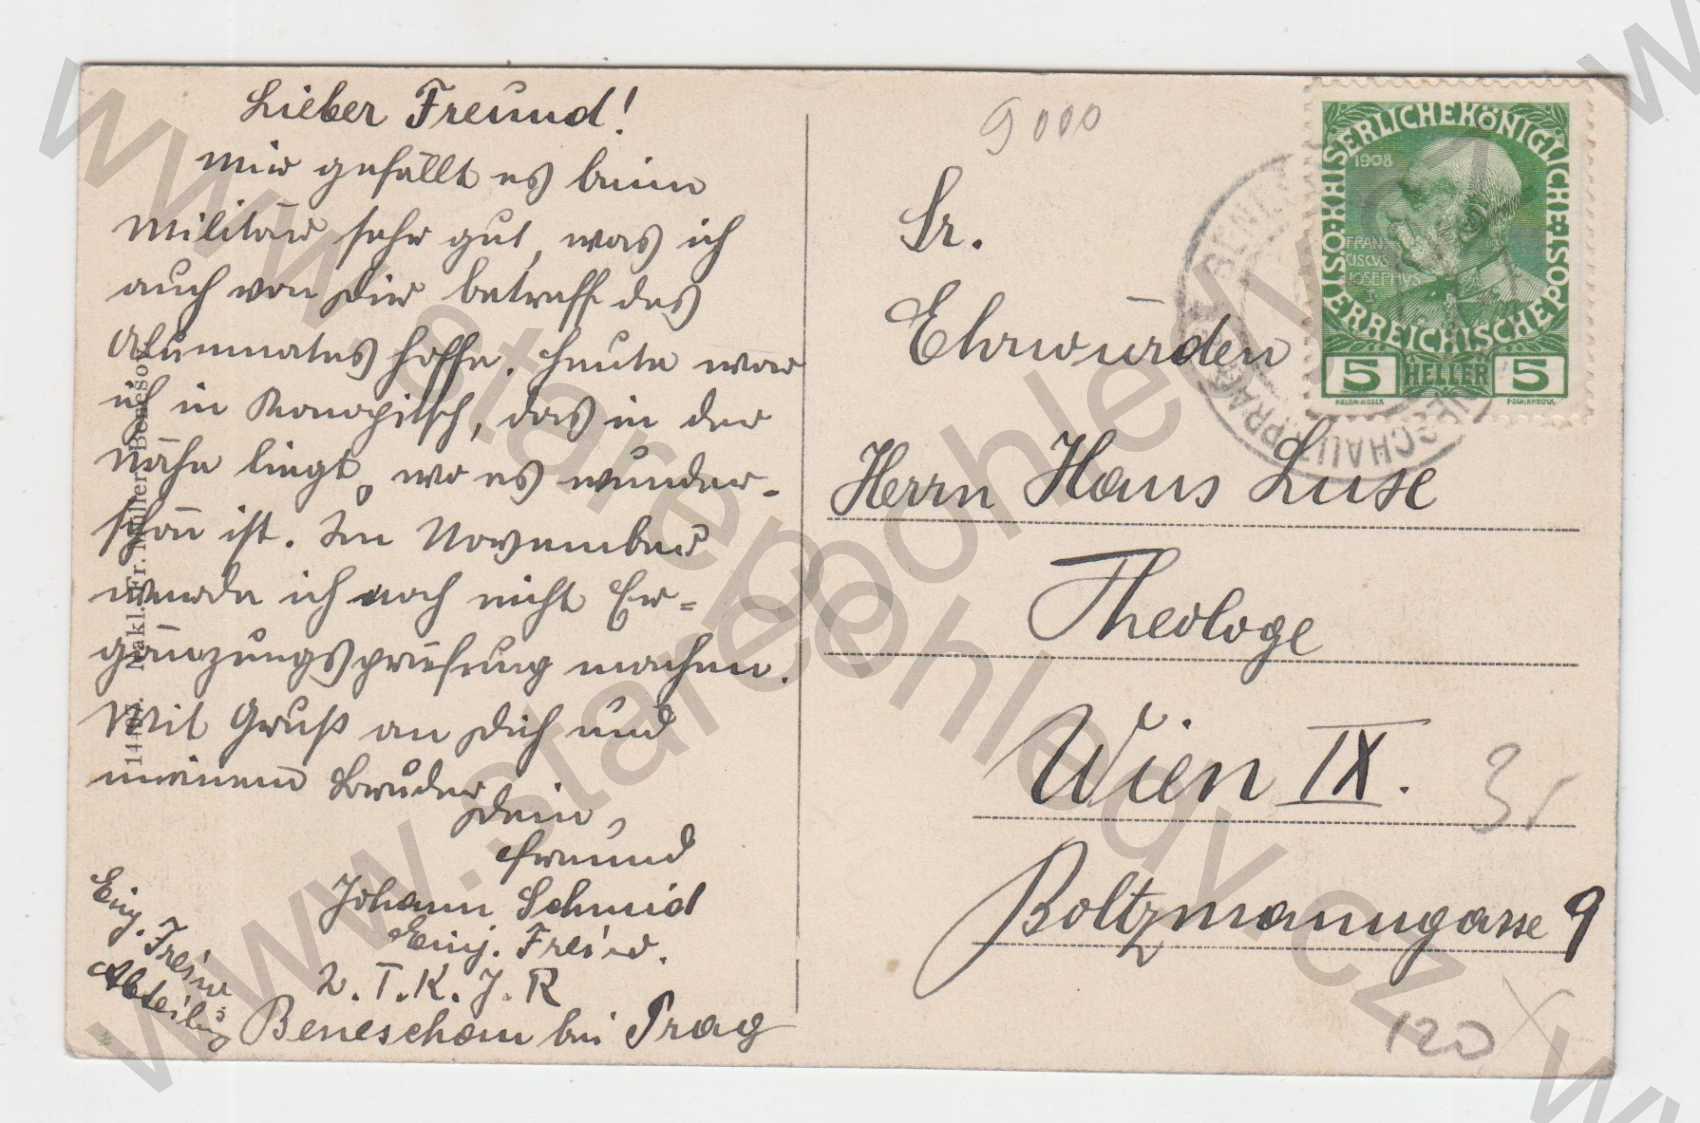 Lieber Freund!
Mir gefällt es beim
Militär sehr gut, was ich
auch von Dir betreff des
Alumnates hoffe. Heute war
ich in Konopitsch, das in der
Nähe liegt, wo es wunder-
schön ist. Im November
werde ich noch nicht Er=
gänzungsprüfung machen.
Mit Gruß an Dich und
meinem Bruder
Dein
Freund
Johann Schmid
Einj. Freiw.
2. T. K. J. R
Beneschau bei Prag
Einj. Freiw
Abteilung
14407. Nakl. Fr. Müller, Benešov.
9000
Sr.
Ehrwürden
Herrn Hans Luse
Theologe
Wien IX.
Boltzmanngasse 9
120
KAISERLICHEKÖNIGLICHE
ÖSTERREICHISCHEPOST
1908
FRAN
CISCVS
IOSEPHVS
5 HELLER 5
BENE
BENESCHAU B. PRAG
www.starepohledy.cz
www.starepohledy.cz